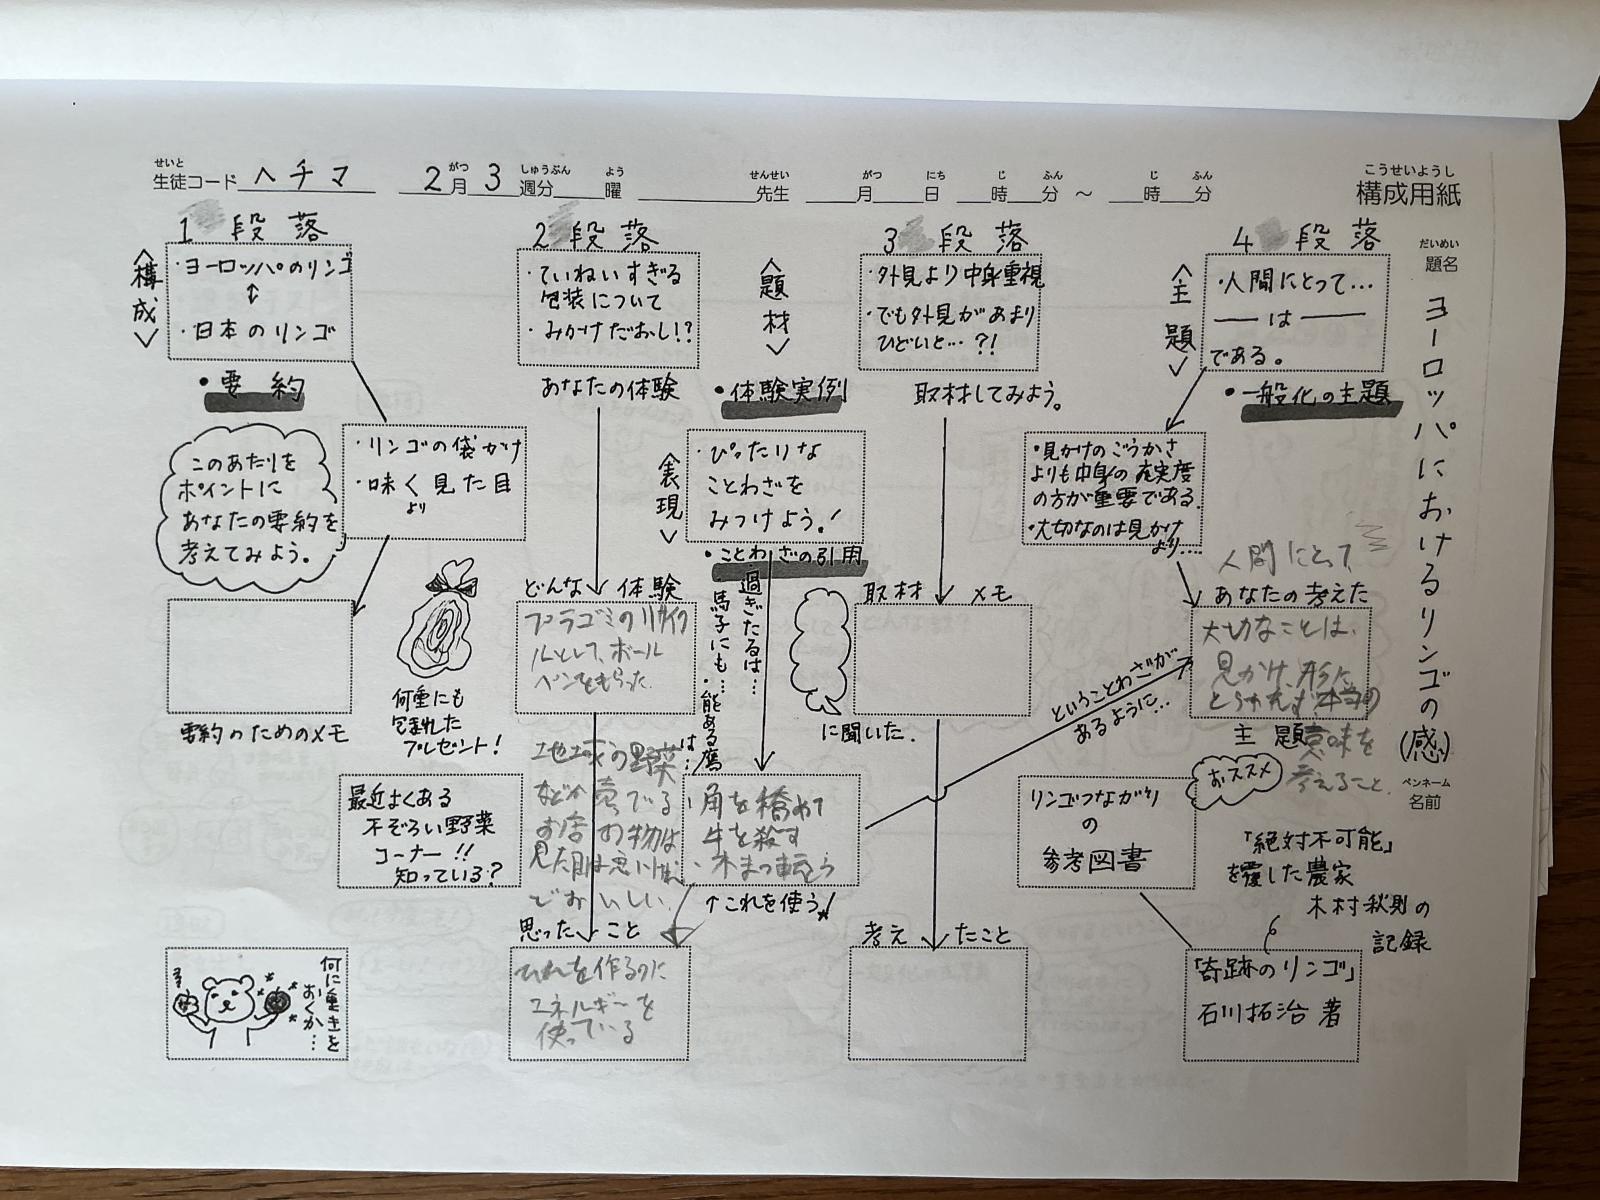 せいと
生徒コード ヘチマ 2月 3週分 曜 先生 月 日 時 分 〜 時 分
がつ しゅうぶん よう せんせい がつ にち じ ふん じ ふん
こうせいようし
構成用紙
だいめい
題名
ヨーロッパにおけるリンゴの(感)
ペンネーム
名前
1 段落
〈構成〉
・ヨーロッパのリンゴ
↕
・日本のリンゴ
・要約
・リンゴの袋かけ
・味く見た目
より
このあたりを
ポイントに
あなたの要約を
考えてみよう。
要約のためのメモ
何重にも
包まれた
プレゼント!
最近よくある
不ぞろい野菜
コーナー!!
知っている?
何に重きを
おくか…
2 段落
・ていねいすぎる
包装について
・みかけだおし!?
あなたの体験
どんな体験
プラゴミのリサイク
ルとして、ボール
ペンをもらった
地球の野菜
などが売でる
お店の物は
見た目は悪いけど
でおいしい
思ったこと
を作るのに
エネルギーを
使っている
〈題材〉
・体験実例
〈表現〉
・ぴったりな
ことわざを
みつけよう!
・ことわざの引用
・過ぎたるは…
馬子にも…
・能ある鷹
は…
・角を矯めて
牛を殺す
・木まつ転とう
↑これを使う!
3 段落
・外見より中身重視
・でも外見があまり
ひどいと…?!
取材してみよう。
取材メモ
に聞いた.
考えたこと
ということわざが
あるように…
4 段落
〈主題〉
・人間にとって…
――は――
である。
・一般化の主題
・見かけのごうかさ
よりも中身の充実度
の方が重要である.
・大切なのは見かけ
より…
人間にとって
あなたの考えた
大切なことは、
見かけ、形に
とらわれず本当の
意味を
考えること.
主題
おススメ
リンゴつながり
の
参考図書
「絶対不可能」
を覆した農家
木村秋則の
記録
「奇跡のリンゴ」
石川拓治 著